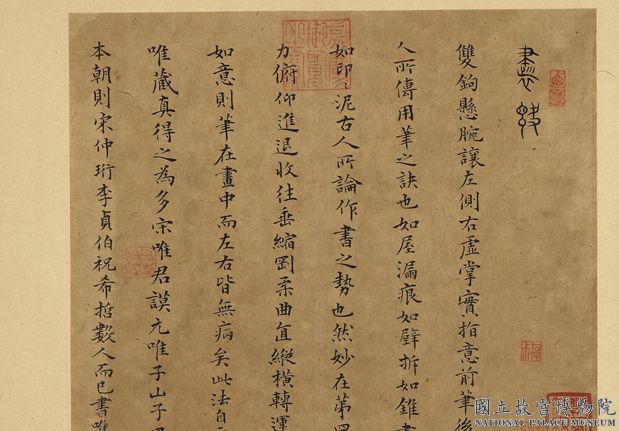 書勢
雙鉤懸腕讓左側右虛掌實指意前筆後
人所傳用筆之訣也如屋漏痕如壁拆如錐畫
如印印泥古人所論作書之勢也然妙在第四
力俯仰進退收往垂縮剛柔曲直縱橫轉運
如意則筆在畫中而左右皆無病矣此法自
唯藏真得之為多宋唯君謨元唯子山子
本朝則宋仲珩李貞伯祝希哲數人而已書唯
國立故宮博物院
NATIONAL PALACE MUSEUM